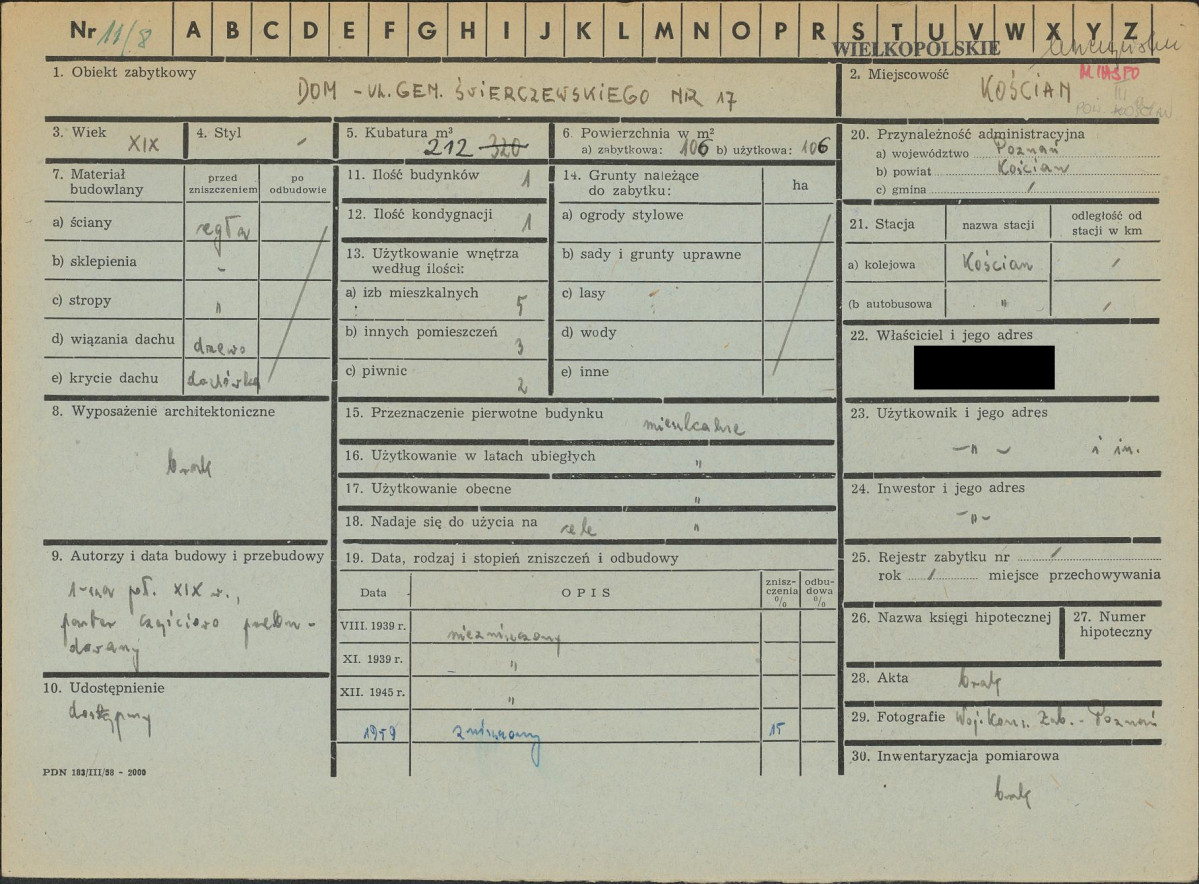 Nr 11/8 A B C D E F G H I J K L M N O P R S T U V W X Y Z
WIELKOPOLSKIE
MIASTO
1. Obiekt zabytkowy
DOM - UL. GEN. ŚWIERCZEWSKIEGO NR 17
2. Miejscowość
KOŚCIAN
3. Wiek
XIX
4. Styl
/
5. Kubatura m³
212 320
6. Powierzchnia w m²
a) zabytkowa: 106 b) użytkowa: 106
7. Materiał budowlany
przed zniszczeniem
po odbudowie
a) ściany cegła
b) sklepienia -
c) stropy "
d) wiązania dachu drzewo
e) krycie dachu dachówka
8. Wyposażenie architektoniczne
brak
9. Autorzy i data budowy i przebudowy
1-sza poł. XIX w.,
parter częściowo przebu-
dowany
10. Udostępnienie
dostępny
PDN 183/III/58 - 2000
11. Ilość budynków 1
12. Ilość kondygnacji 1
13. Użytkowanie wnętrza według ilości:
a) izb mieszkalnych 5
b) innych pomieszczeń 3
c) piwnic 2
14. Grunty należące do zabytku:
ha
a) ogrody stylowe
b) sady i grunty uprawne
c) lasy
d) wody
e) inne
15. Przeznaczenie pierwotne budynku mieszkalne
16. Użytkowanie w latach ubiegłych "
17. Użytkowanie obecne "
18. Nadaje się do użycia na cele "
19. Data, rodzaj i stopień zniszczeń i odbudowy
Data OPIS zniszczenia % odbudowa %
VIII. 1939 r. niezniszczony
XI. 1939 r. "
XII. 1945 r. "
1959 zniszczony 15
20. Przynależność administracyjna
a) województwo Poznań
b) powiat Kościan
c) gmina /
21. Stacja nazwa stacji odległość od stacji w km
a) kolejowa Kościan /
(b autobusowa " /
22. Właściciel i jego adres
23. Użytkownik i jego adres
-"- i in.
24. Inwestor i jego adres
-"-
25. Rejestr zabytku nr /
rok / miejsce przechowywania
26. Nazwa księgi hipotecznej
27. Numer hipoteczny
28. Akta brak
29. Fotografie Woj. Kons. Zab. - Poznań
30. Inwentaryzacja pomiarowa
brak